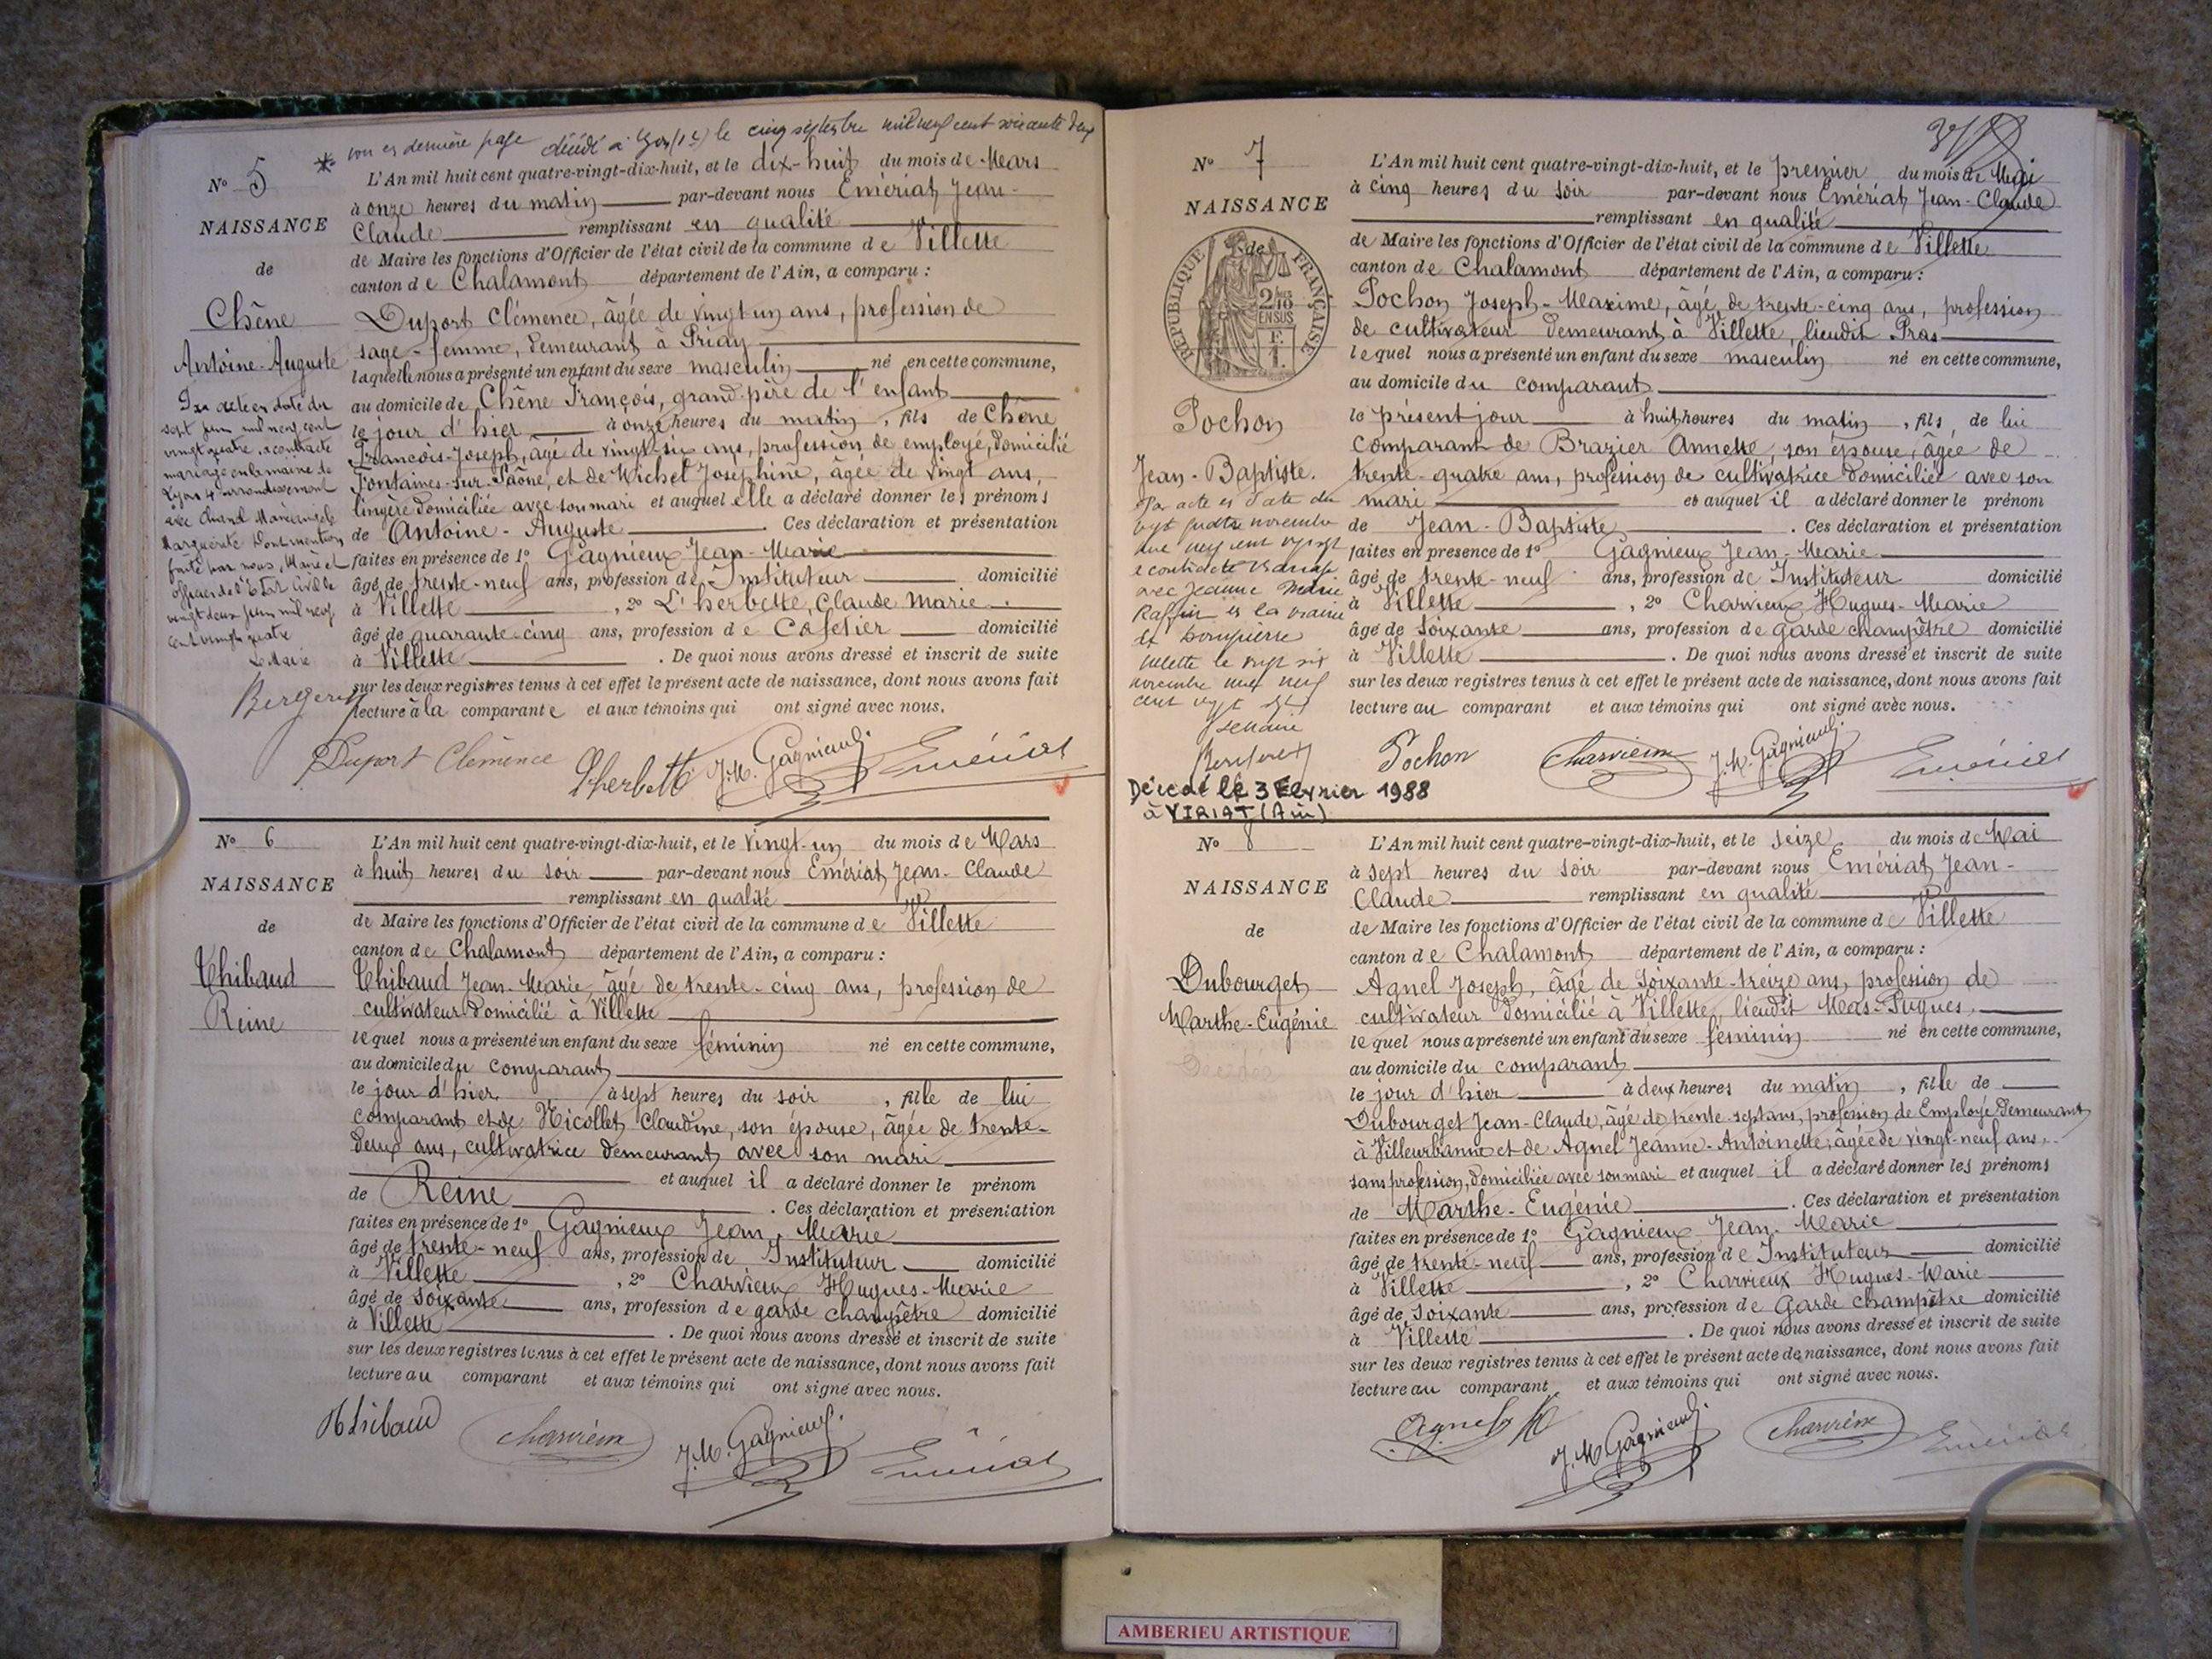 voir en dernière page décédé à Lyon (1er) le cinq septembre mil neuf cent soixante deux
N° 5
NAISSANCE
de
Chêne
Antoine-Auguste
Par acte en date du
sept juin mil neuf cent
vingt quatre a contracté
mariage en la mairie de
Lyon 4e arrondissement
avec
Marguerite dont mention
faite par nous, Maire et
officier de l'Etat Civil le
vingt deux juin mil neuf
cent vingt quatre
Le Maire
L'An mil huit cent quatre-vingt-dix-huit, et le dix-huit du mois de Mars
à onze heures du matin par-devant nous Emériat Jean-
Claude remplissant en qualité
de Maire les fonctions d'Officier de l'état civil de la commune de Villette
canton de Chalamont département de l'Ain, a comparu :
Duport Clémence, âgée de vingt-un ans, profession de
sage-femme, demeurant à Priay
laquelle nous a présenté un enfant du sexe masculin né en cette commune,
au domicile de Chêne François, grand-père de l'enfant
le jour d'hier à onze heures du matin, fils de Chêne
François-Joseph, âgé de vingt-six ans, profession de employé, domicilié
Fontaines-sur-Saône, et de Michel Joséphine, âgée de vingt ans,
lingère domiciliée avec son mari et auquel elle a déclaré donner les prénoms
de Antoine-Auguste. Ces déclaration et présentation
faites en présence de 1° Gagnieux Jean-Marie
âgé de trente-neuf ans, profession de Instituteur domicilié
à Villette, 2° L'herbette, Claude Marie
âgé de quarante-cinq ans, profession de Cafetier domicilié
à Villette. De quoi nous avons dressé et inscrit de suite
sur les deux registres tenus à cet effet le présent acte de naissance, dont nous avons fait
lecture à la comparante et aux témoins qui ont signé avec nous.
Duport Clémence Lherbette J.M. Gagnieux Emériat
N° 6
NAISSANCE
de
Thibaud
Reine
L'An mil huit cent quatre-vingt-dix-huit, et le vingt-un du mois de Mars
à huit heures du soir par-devant nous Emériat Jean-Claude
remplissant en qualité
de Maire les fonctions d'Officier de l'état civil de la commune de Villette
canton de Chalamont département de l'Ain, a comparu :
Thibaud Jean-Marie, âgé de trente-cinq ans, profession de
cultivateur domicilié à Villette
lequel nous a présenté un enfant du sexe féminin né en cette commune,
au domicile du comparant
le jour d'hier, à sept heures du soir, fille de lui
comparant et de Nicollet Claudine, son épouse, âgée de trente-
deux ans, cultivatrice demeurant avec son mari
et auquel il a déclaré donner le prénom
de Reine. Ces déclaration et présentation
faites en présence de 1° Gagnieux Jean-Marie
âgé de trente-neuf ans, profession de Instituteur domicilié
à Villette, 2° Charvieux Hugues-Marie
âgé de soixante ans, profession de garde champêtre domicilié
à Villette. De quoi nous avons dressé et inscrit de suite
sur les deux registres tenus à cet effet le présent acte de naissance, dont nous avons fait
lecture au comparant et aux témoins qui ont signé avec nous.
Thibaud Charvieux J.M. Gagnieux Emériat
N° 7
NAISSANCE
de
RÉPUBLIQUE FRANÇAISE
2/10
EN SUS
F.
1.
Pochon
Jean-Baptiste.
Par acte en date du
vingt quatre novembre
mil neuf cent vingt
a contracté mariage
avec Jeanne Marie
Raffin en la mairie
de Dompierre
Villette le vingt six
novembre mil neuf
cent vingt
Le Maire
Décédé le 3 Février 1988
à VIRIAT (Ain)
L'An mil huit cent quatre-vingt-dix-huit, et le premier du mois de Mai
à cinq heures du soir par-devant nous Emériat Jean-Claude
remplissant en qualité
de Maire les fonctions d'Officier de l'état civil de la commune de Villette
canton de Chalamont département de l'Ain, a comparu :
Pochon Joseph-Maxime, âgé de trente-cinq ans, profession
de cultivateur demeurant à Villette, lieudit Pras
lequel nous a présenté un enfant du sexe masculin né en cette commune,
au domicile du comparant
le présent jour à huit heures du matin, fils de lui
comparant de Brazier Annette, son épouse, âgée de
trente-quatre ans, profession de cultivatrice domiciliée avec son
mari et auquel il a déclaré donner le prénom
de Jean-Baptiste. Ces déclaration et présentation
faites en présence de 1° Gagnieux Jean-Marie
âgé de trente-neuf ans, profession de Instituteur domicilié
à Villette, 2° Charvieux Hugues-Marie
âgé de soixante ans, profession de garde champêtre domicilié
à Villette. De quoi nous avons dressé et inscrit de suite
sur les deux registres tenus à cet effet le présent acte de naissance, dont nous avons fait
lecture au comparant et aux témoins qui ont signé avec nous.
Pochon Charvieux J.M. Gagnieux Emériat
N° 8
NAISSANCE
de
Dubourget
Marthe-Eugénie
L'An mil huit cent quatre-vingt-dix-huit, et le seize du mois de Mai
à sept heures du soir par-devant nous Emériat Jean-
Claude remplissant en qualité
de Maire les fonctions d'Officier de l'état civil de la commune de Villette
canton de Chalamont département de l'Ain, a comparu :
Agnel Joseph, âgé de soixante-treize ans, profession de
cultivateur domicilié à Villette, lieudit Mas-Pugues,
lequel nous a présenté un enfant du sexe féminin né en cette commune,
au domicile du comparant
le jour d'hier à deux heures du matin, fille de
Dubourget Jean-Claude, âgé de trente-sept ans, profession de Employé demeurant
à Villeurbanne et de Agnel Jeanne-Antoinette, âgée de vingt-neuf ans,
sans profession, domiciliée avec son mari et auquel il a déclaré donner les prénoms
de Marthe-Eugénie. Ces déclaration et présentation
faites en présence de 1° Gagnieux Jean-Marie
âgé de trente-neuf ans, profession de Instituteur domicilié
à Villette, 2° Charvieux Hugues-Marie
âgé de soixante ans, profession de Garde champêtre domicilié
à Villette. De quoi nous avons dressé et inscrit de suite
sur les deux registres tenus à cet effet le présent acte de naissance, dont nous avons fait
lecture au comparant et aux témoins qui ont signé avec nous.
Agnel J.M. Gagnieux Charvieux Emériat
AMBERIEU ARTISTIQUE